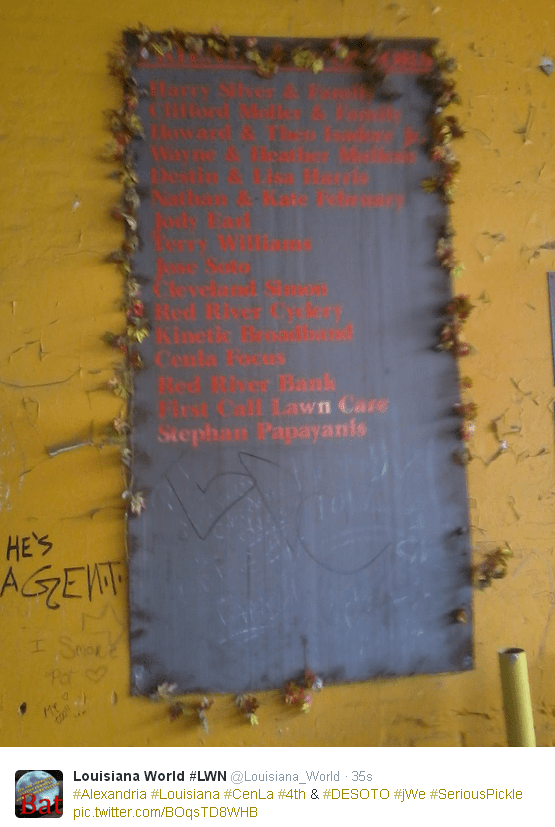 Harry Silver & Family
Clifford Moller & Family
Howard & Theo Isadore Jr.
Wayne & Heather
Destin & Lisa Harris
Nathan & Kate February
Jody Earl
Terry Williams
Jose Soto
Cleveland Simon
Red River Cyclery
Kinetic Broadband
Cenla Focus
Red River Bank
First Call Lawn Care
Stephan Papayanis
HE'S
AGENT
I Smoke
Pot
Bat
Louisiana World #LWN @Louisiana_World · 35s
#Alexandria #Louisiana #CenLa #4th & #DESOTO #jWe #SeriousPickle
pic.twitter.com/BOqsTD8WHB